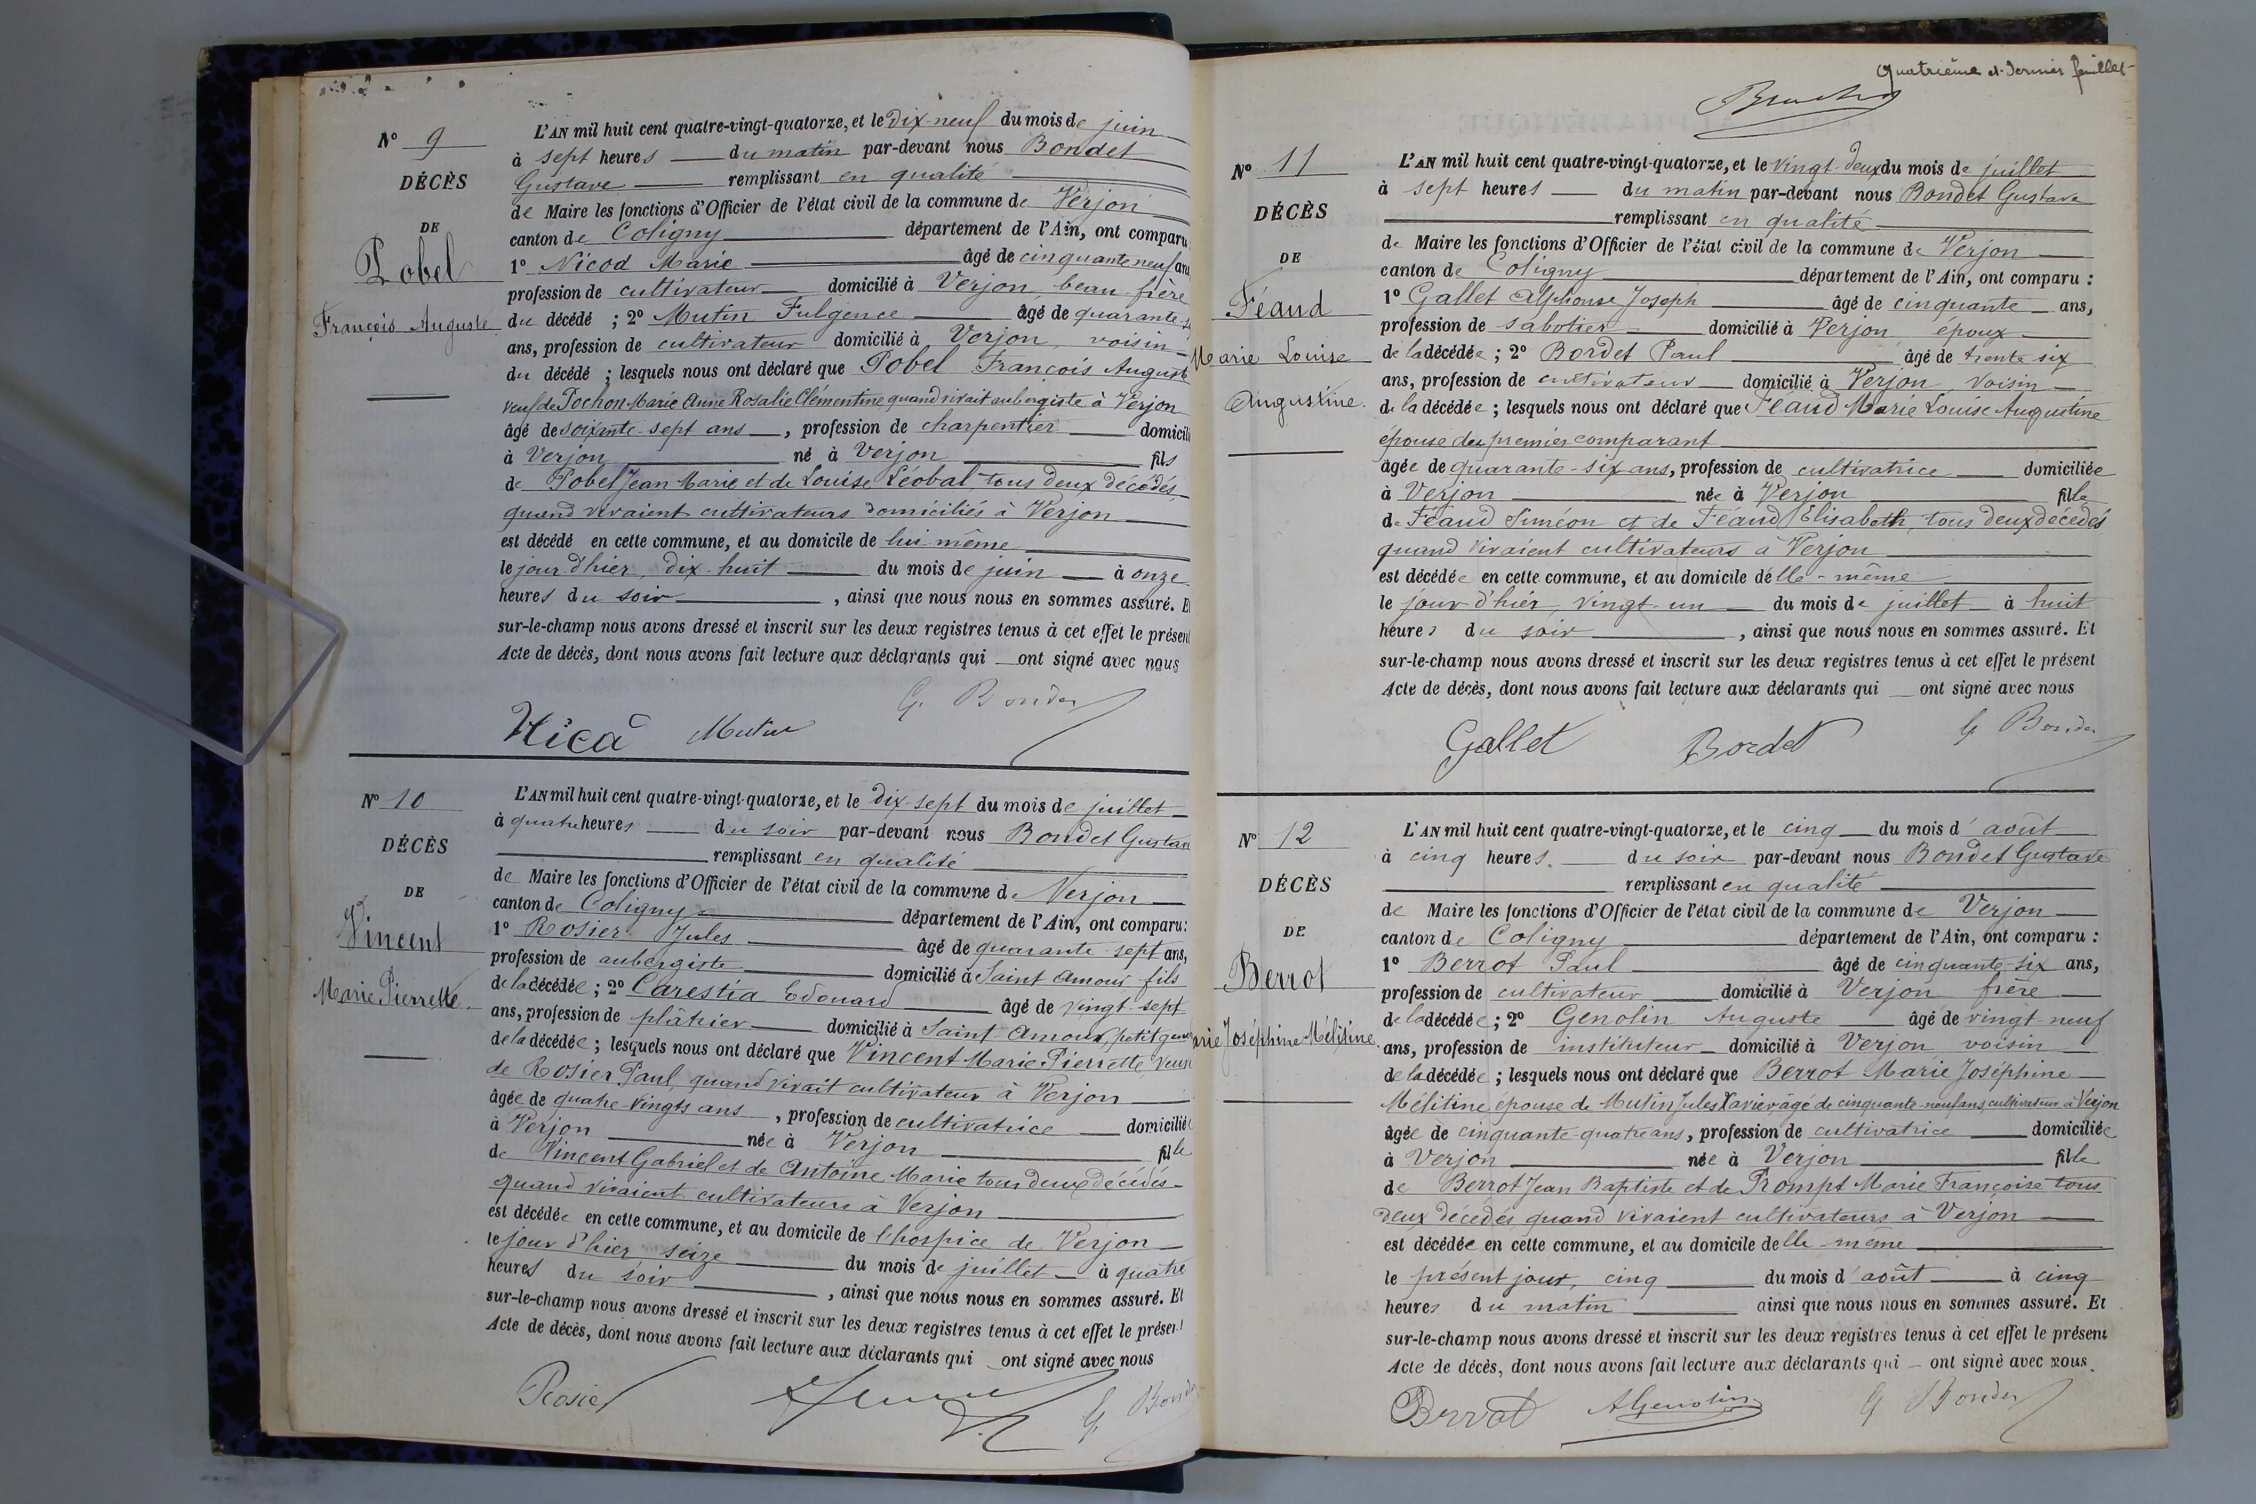 Nº 9
DÉCÈS
DE
Pobel
François Auguste
L'AN mil huit cent quatre-vingt-quatorze, et le dix-neuf du mois de juin
à sept heures du matin par-devant nous Bondet
Gustave remplissant en qualité
de Maire les fonctions d'Officier de l'état civil de la commune de Verjon
canton de Coligny département de l'Ain, ont comparu
1º Nicod Marie âgé de cinquante neuf ans
profession de cultivateur domicilié à Verjon beau-frère
du décédé ; 2º Mutin Fulgence âgé de quarante
ans, profession de cultivateur domicilié à Verjon, voisin
du décédé ; lesquels nous ont déclaré que Pobel François Auguste
veuf de Pochon Marie Anne Rosalie Clémentine quand vivait aubergiste à Verjon
âgé de soixante-sept ans, profession de charpentier domicili
à Verjon né à Verjon fils
de Pobel Jean Marie et de Louise Léobal tous deux décédés
quand vivaient cultivateurs domiciliés à Verjon
est décédé en cette commune, et au domicile de lui-même
le jour d'hier, dix-huit du mois de juin à onze
heures du soir, ainsi que nous nous en sommes assuré. E
sur-le-champ nous avons dressé et inscrit sur les deux registres tenus à cet effet le présen
Acte de décès, dont nous avons fait lecture aux déclarants qui ont signé avec nous
G. Bondet
Nicod Mutin
Nº 10
DÉCÈS
DE
Vincent
Marie Pierrette
L'AN mil huit cent quatre-vingt-quatorze, et le dix-sept du mois de juillet
à quatre heures du soir par-devant nous Bondet Gustav
remplissant en qualité
de Maire les fonctions d'Officier de l'état civil de la commune de Verjon
canton de Coligny département de l'Ain, ont comparu :
1º Rosier Jules âgé de quarante-sept ans,
profession de aubergiste domicilié à Saint Amour fils
de la décédée ; 2º Carestia Edouard âgé de vingt-sept
ans, profession de plâtrier domicilié à Saint-Amour, petit gen
de la décédée ; lesquels nous ont déclaré que Vincent Marie Pierrette, veuve
de Rosier Paul, quand vivait cultivateur à Verjon
âgée de quatre-vingts ans, profession de cultivatrice domiciliée
à Verjon née à Verjon fille
de Vincent Gabriel et de Antoine Marie tous deux décédés
quand vivaient cultivateurs à Verjon
est décédée en cette commune, et au domicile de l'hospice de Verjon
le jour d'hier seize du mois de juillet à quatre
heures du soir, ainsi que nous nous en sommes assuré. Et
sur-le-champ nous avons dressé et inscrit sur les deux registres tenus à cet effet le présen
Acte de décès, dont nous avons fait lecture aux déclarants qui ont signé avec nous
Rosier G. Bondet
Quatrième et dernier feuillet
Nº 11
DÉCÈS
DE
Féaud
Marie Louise
Augustine
L'AN mil huit cent quatre-vingt-quatorze, et le vingt-deux du mois de juillet
à sept heures du matin par-devant nous Bondet Gustave
remplissant en qualité
de Maire les fonctions d'Officier de l'état civil de la commune de Verjon
canton de Coligny département de l'Ain, ont comparu :
1º Gallet Alphonse Joseph âgé de cinquante ans,
profession de sabotier domicilié à Verjon époux
de la décédée ; 2º Bordet Paul âgé de trente six
ans, profession de cultivateur domicilié à Verjon, voisin
de la décédée ; lesquels nous ont déclaré que Féaud Marie Louise Augustine
épouse du premier comparant
âgée de quarante-six ans, profession de cultivatrice domiciliée
à Verjon née à Verjon fille
de Féaud Siméon et de Féaud Elisabeth, tous deux décédés
quand vivaient cultivateurs à Verjon
est décédée en cette commune, et au domicile d'elle-même
le jour d'hier, vingt-un du mois de juillet à huit
heures du soir, ainsi que nous nous en sommes assuré. Et
sur-le-champ nous avons dressé et inscrit sur les deux registres tenus à cet effet le présent
Acte de décès, dont nous avons fait lecture aux déclarants qui ont signé avec nous
Gallet Bordet G Bondet
Nº 12
DÉCÈS
DE
Berrot
arie Joséphine Mélitine
L'AN mil huit cent quatre-vingt-quatorze, et le cinq du mois d'août
à cinq heures du soir par-devant nous Bondet Gustave
remplissant en qualité
de Maire les fonctions d'Officier de l'état civil de la commune de Verjon
canton de Coligny département de l'Ain, ont comparu :
1º Berrot Paul âgé de cinquante-six ans,
profession de cultivateur domicilié à Verjon frère
de la décédée ; 2º Genolin Auguste âgé de vingt neuf
ans, profession de instituteur domicilié à Verjon voisin
de la décédée ; lesquels nous ont déclaré que Berrot Marie Joséphine
Mélitine épouse de Mutin Jules Xavier âgé de cinquante-neuf ans, cultivateur à Verjon
âgée de cinquante-quatre ans, profession de cultivatrice domiciliée
à Verjon née à Verjon fille
de Berrot Jean Baptiste et de Prompt Marie Françoise tous
deux décédés quand vivaient cultivateurs à Verjon
est décédée en cette commune, et au domicile d'elle-même
le présent jour, cinq du mois d'août à cinq
heures du matin ainsi que nous nous en sommes assuré. Et
sur-le-champ nous avons dressé et inscrit sur les deux registres tenus à cet effet le présent
Acte de décès, dont nous avons fait lecture aux déclarants qui ont signé avec nous.
Berrot AGenolin G Bondet